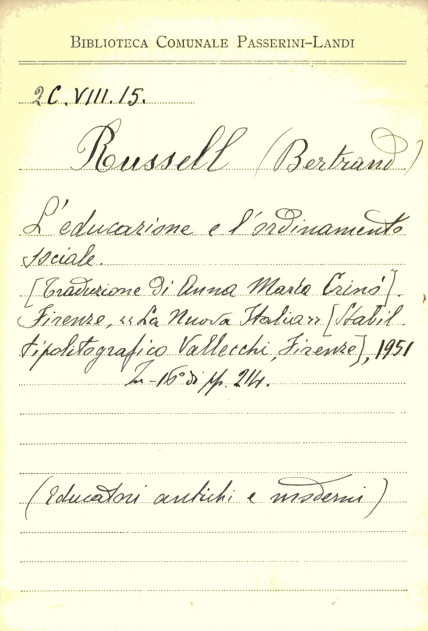 BIBLIOTECA COMUNALE PASSERINI-LANDI
2C.VIII.15.
Russell (Bertrand)
L'educazione e l'ordinamento
sociale.
[Traduzione di Anna Maria Crinò].
Firenze, «La Nuova Italia» [Stabil.
tipolitografico Vallecchi, Firenze], 1951
In-16° di pp. 214.
(Educatori antichi e moderni)